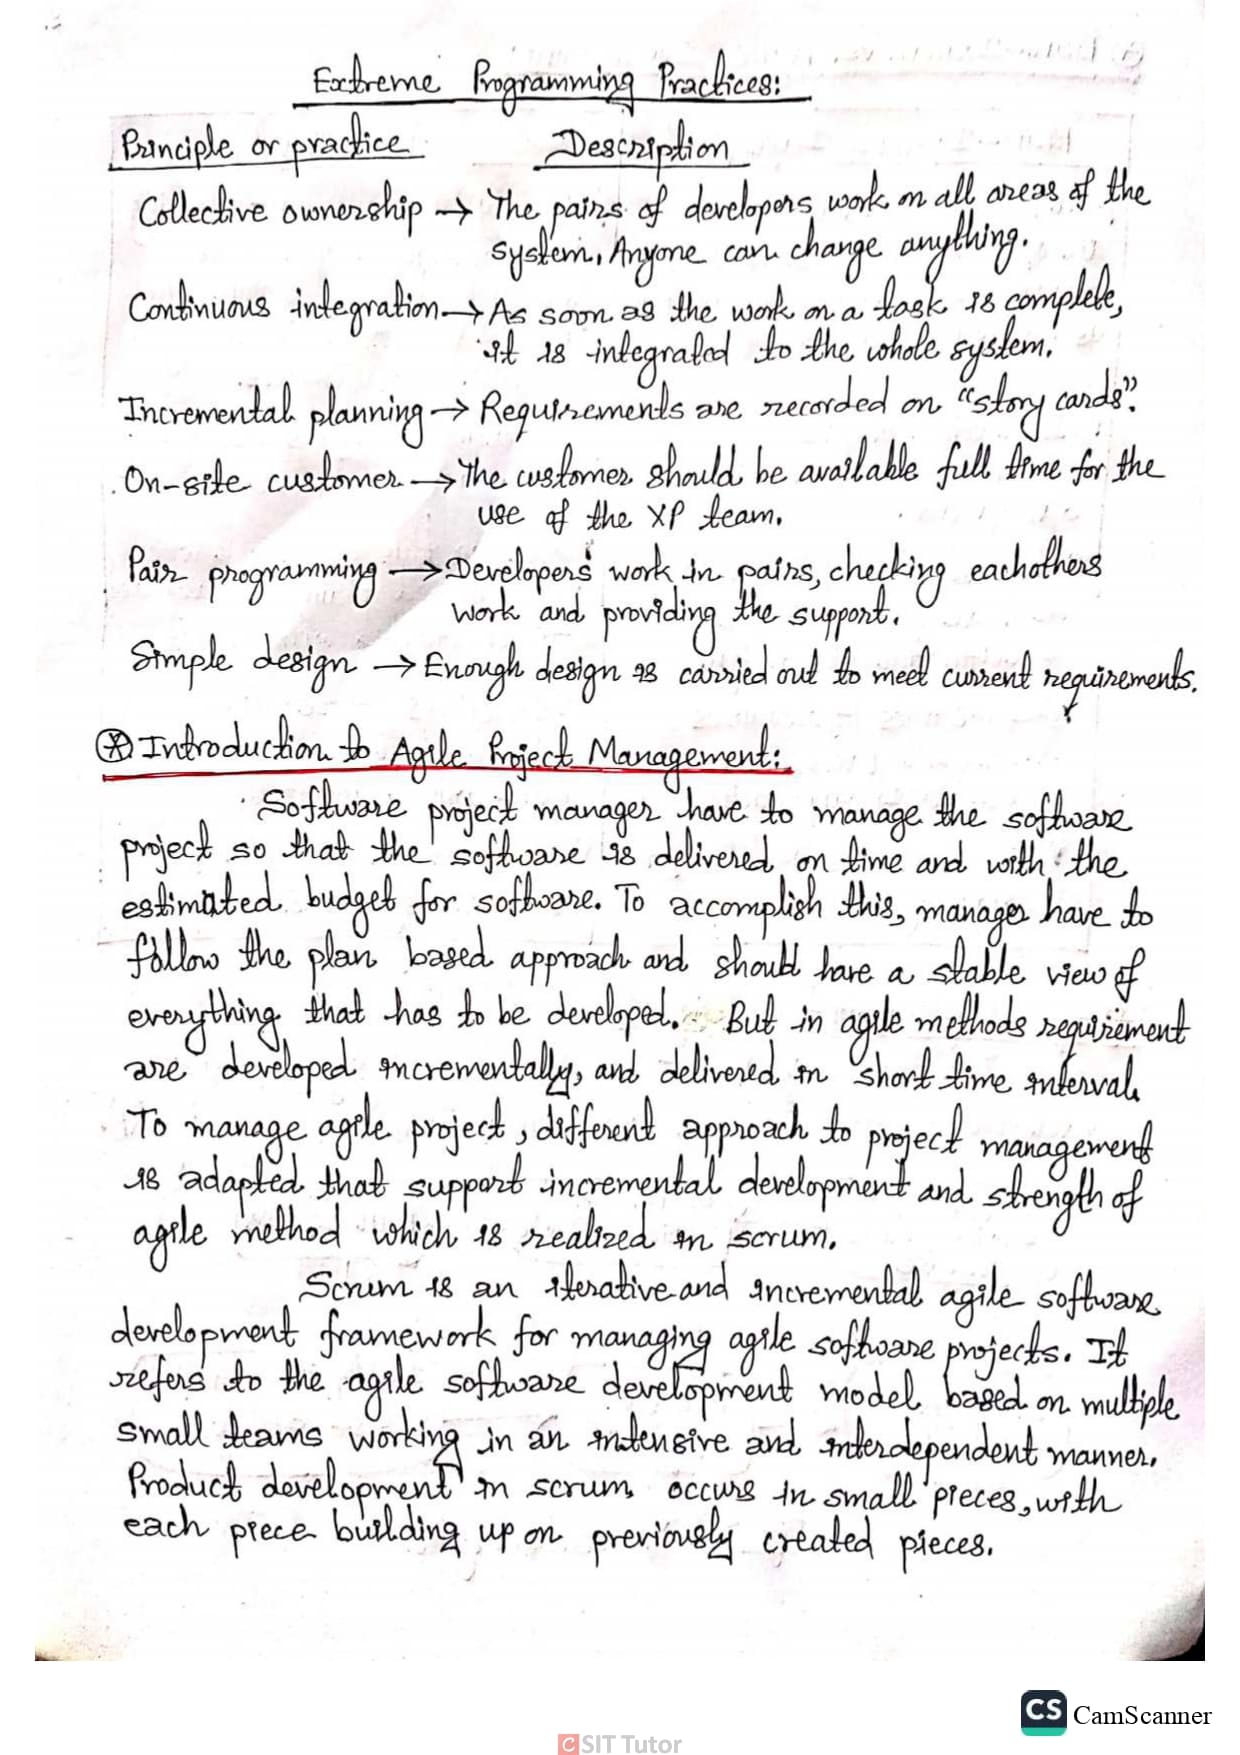 Extreme Programming Practices:
Principle or practice Description
Collective ownership → The pairs of developers work on all areas of the
system. Anyone can change anything.
Continuous integration → As soon as the work on a task is complete,
it is integrated to the whole system.
Incremental planning → Requirements are recorded on "story cards".
On-site customer → The customer should be available full time for the
use of the XP team.
Pair programming → Developers work in pairs, checking eachothers
work and providing the support.
Simple design → Enough design is carried out to meet current requirements.
⊛ Introduction to Agile Project Management:
Software project manager have to manage the software
project so that the software is delivered on time and with the
estimated budget for software. To accomplish this, manager have to
follow the plan based approach and should have a stable view of
everything that has to be developed. But in agile methods requirement
are developed incrementally, and delivered in short time interval.
To manage agile project, different approach to project management
is adapted that support incremental development and strength of
agile method which is realized in scrum.
Scrum is an iterative and incremental agile software
development framework for managing agile software projects. It
refers to the agile software development model based on multiple
small teams working in an intensive and interdependent manner.
Product development in scrum occurs in small pieces, with
each piece building up on previously created pieces.
CS CamScanner
CSIT Tutor